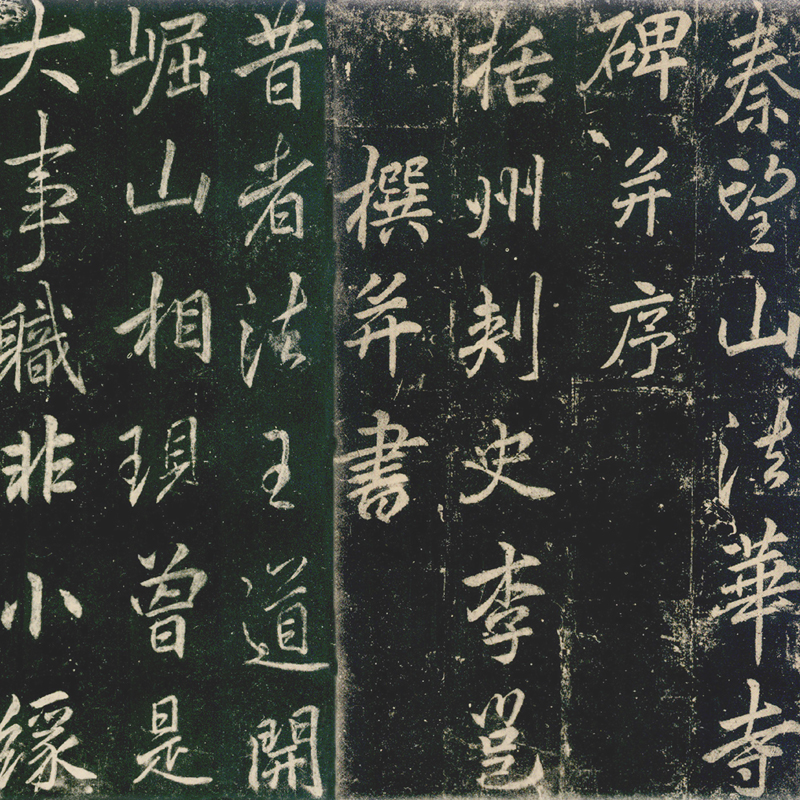 秦望山法華寺
碑并序
括州刺史李邕
撰并書
昔者法王道開
崛山相現曾是
大事職非小緣